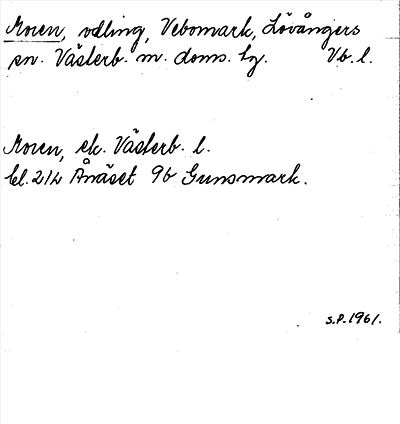 Moren, odling, Vebomark, Lövångers
sn. Västerb. m. doms. hg. Vb. l.
Moren, ek. Västerb. l.
bl. 214 Ånäset 9b Gunsmark.
S.P. 1961.